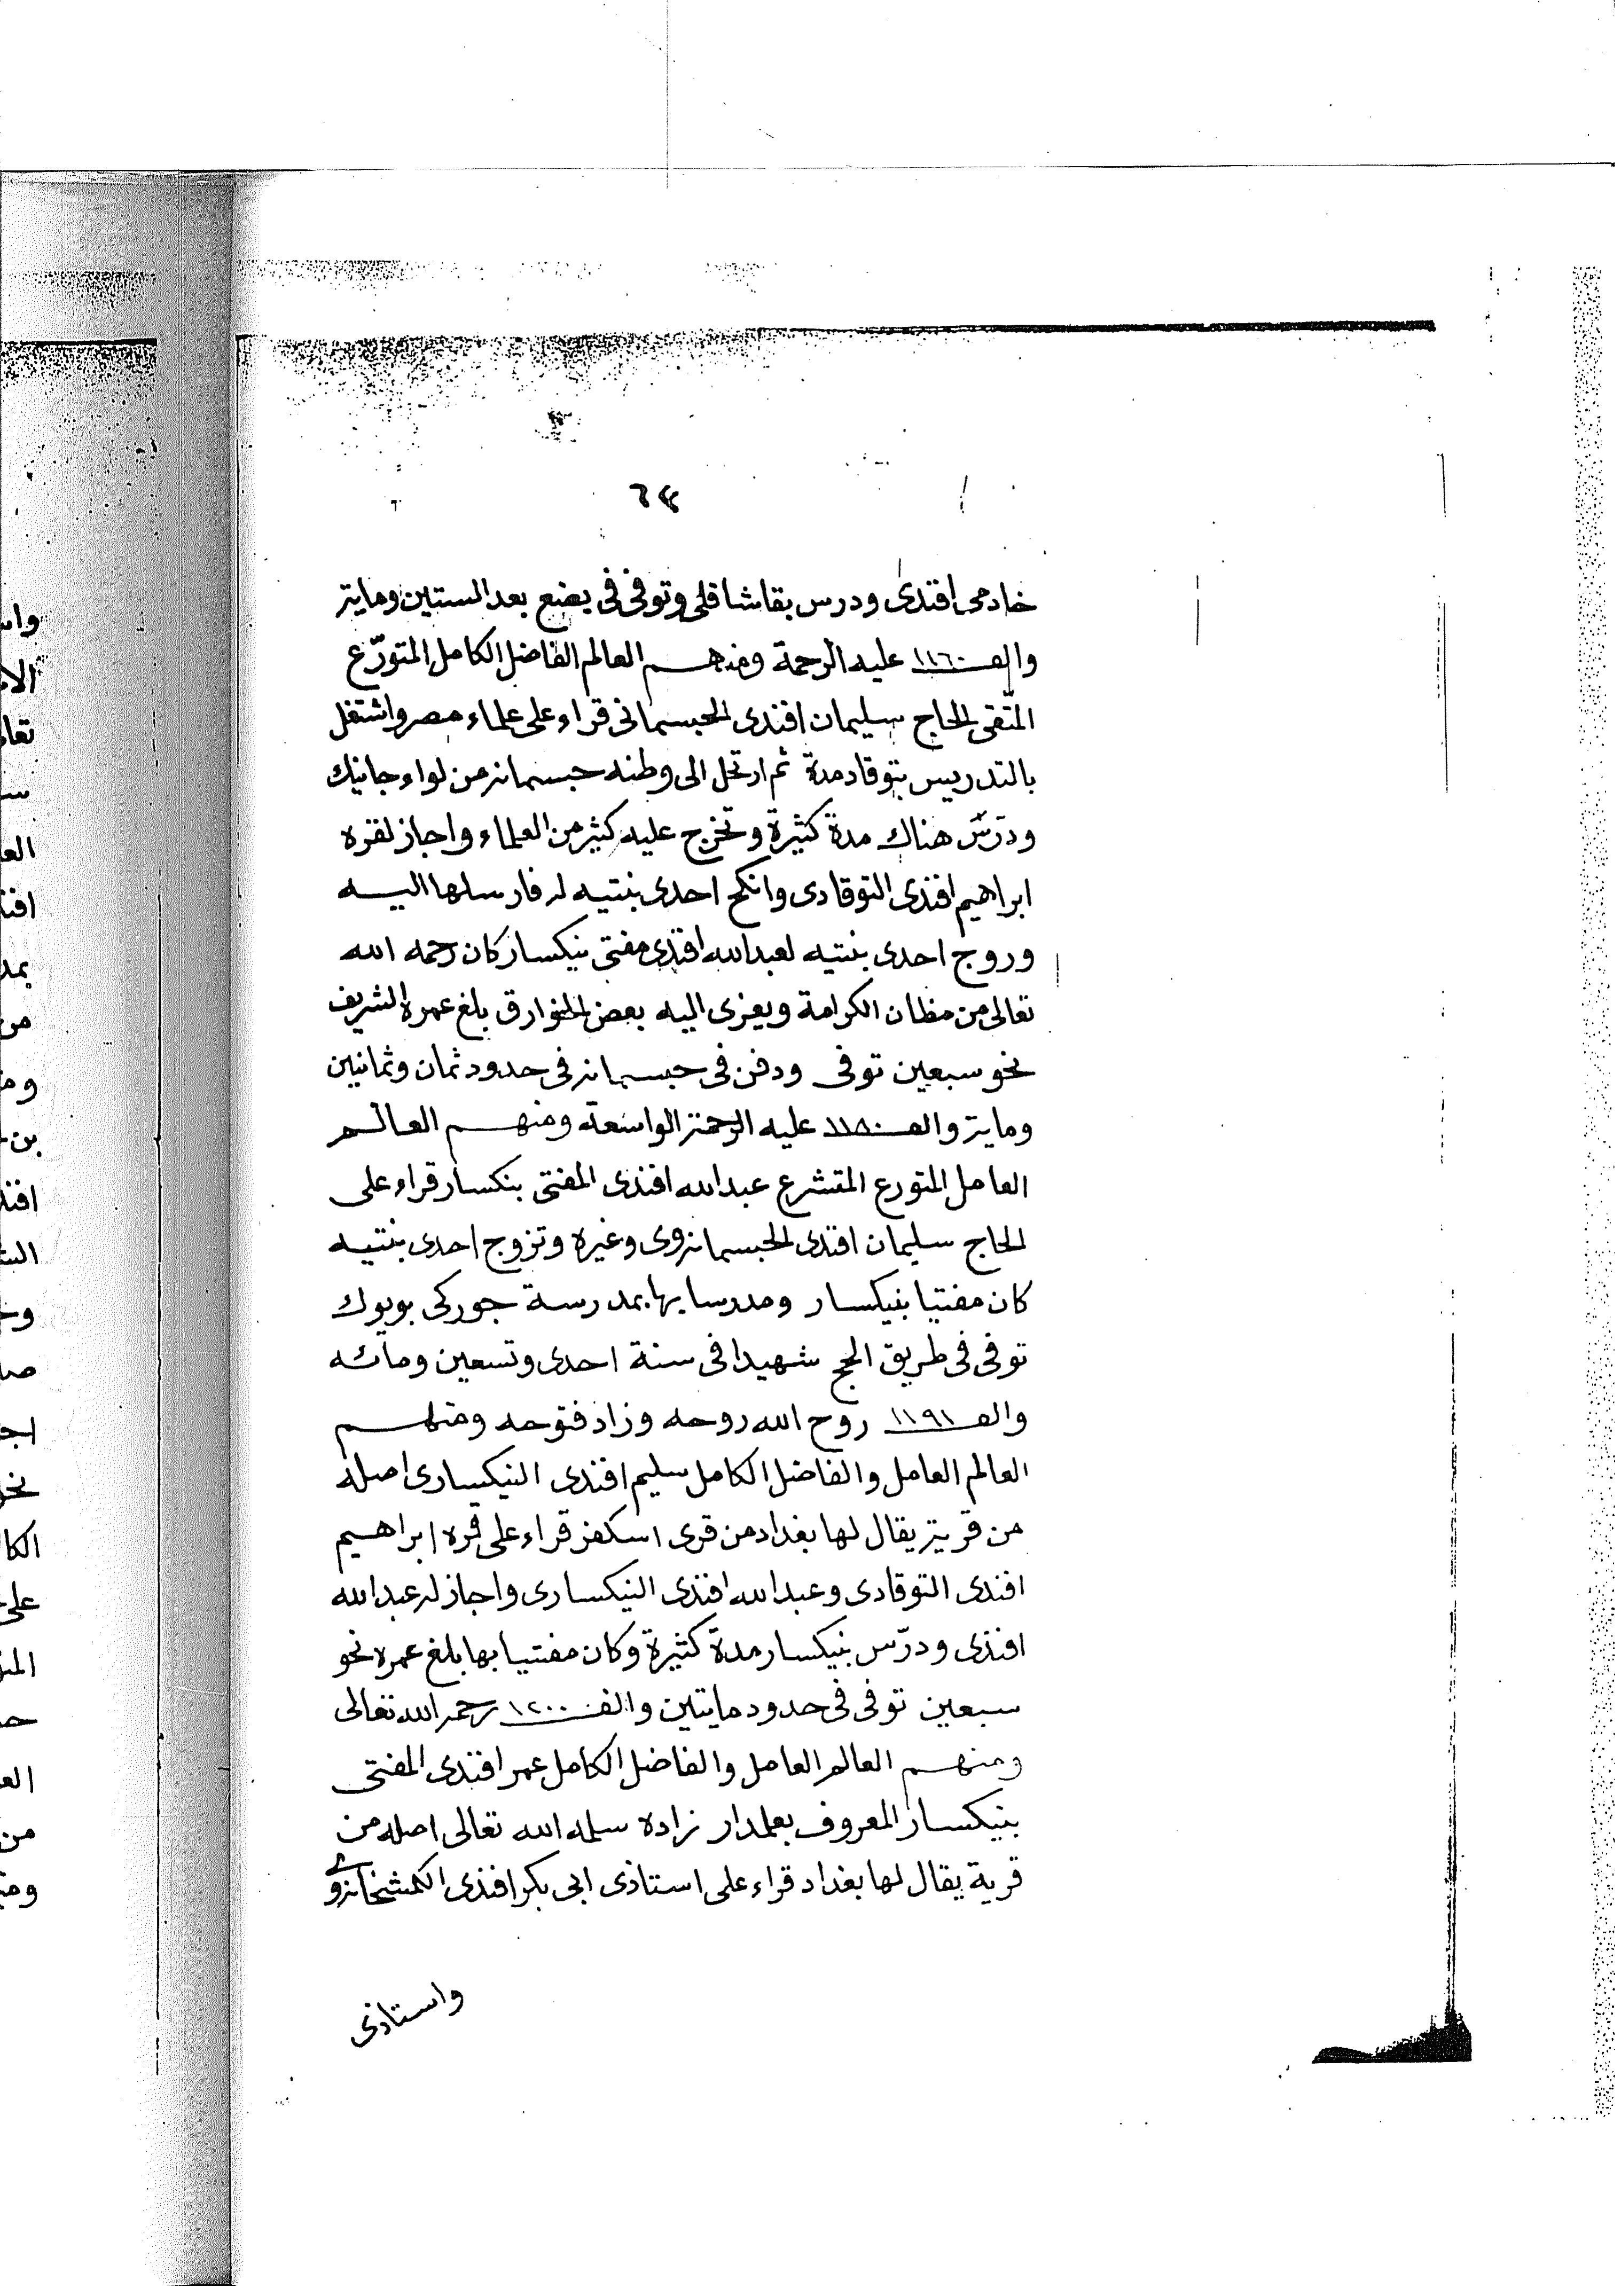 ٦٤
خادمى افندى ودرس بقاشاقلى وتوفى فى بضع بعد الستين وماية
والف ١١٦٠ عليه الرحمة ومنهم العالم الفاضل الكامل المتورّع
المتّقى الحاج سليمان افندى الحبسمانى قراء على علماء مصر واشتغل
بالتدريس بتوقاد مدة ثم ارتحل الى وطنه حبسمانه من لواء جانيك
ودرّس هناك مدة كثيرة وتخرج عليه كثير من العلماء واجاز لقره
ابراهيم افندى التوقادى وانكح احدى بنتيه له فارسلها اليه
وروج احدى بنتيه لعبدالله افندى مفتى نيكسار كان رحمه الله
تعالى من مظان الكرامة ويعزى اليه بعض الخوارق بلغ عمره الشريف
نحو سبعين توفى ودفن فى حبسمانه فى حدود ثمان وثمانين
وماية والف ١١٨٠ عليه الرحمة الواسعة ومنهم العالم
العامل المتورع المتشرع عبدالله افندى المفتى بنكسار قراء على
الحاج سليمان افندى الحبسمانه وى وغيره وتزوج احدى بنتيه
كان مفتيا بنيكسار ومدرسا بها بمدرسة جوركى بويوك
توفى فى طريق الحج شهيدا فى سنة احدى وتسعين ومائه
والف ١١٩١ روح الله روحه وزاد فتوحه ومنهم
العالم العامل والفاضل الكامل سليم افندى النيكسارى اصله
من قرية يقال لها بغداد من قرى اسكفز قراء على قره ابراهيم
افندى التوقادى وعبدالله افندى النيكسارى واجاز له عبدالله
افندى ودرّس بنيكسار مدة كثيرة وكان مفتيا بها بلغ عمره نحو
سبعين توفى فى حدود مايتين والف ١٢٠٠ رحمه الله تعالى
ومنهم العالم العامل والفاضل الكامل عمر افندى المفتى
بنيكسار المعروف بعلمدار زاده سلمه الله تعالى اصله من
قرية يقال لها بغداد قراء على استاذى ابى بكر افندى الكمشخانه وى
واستاذى